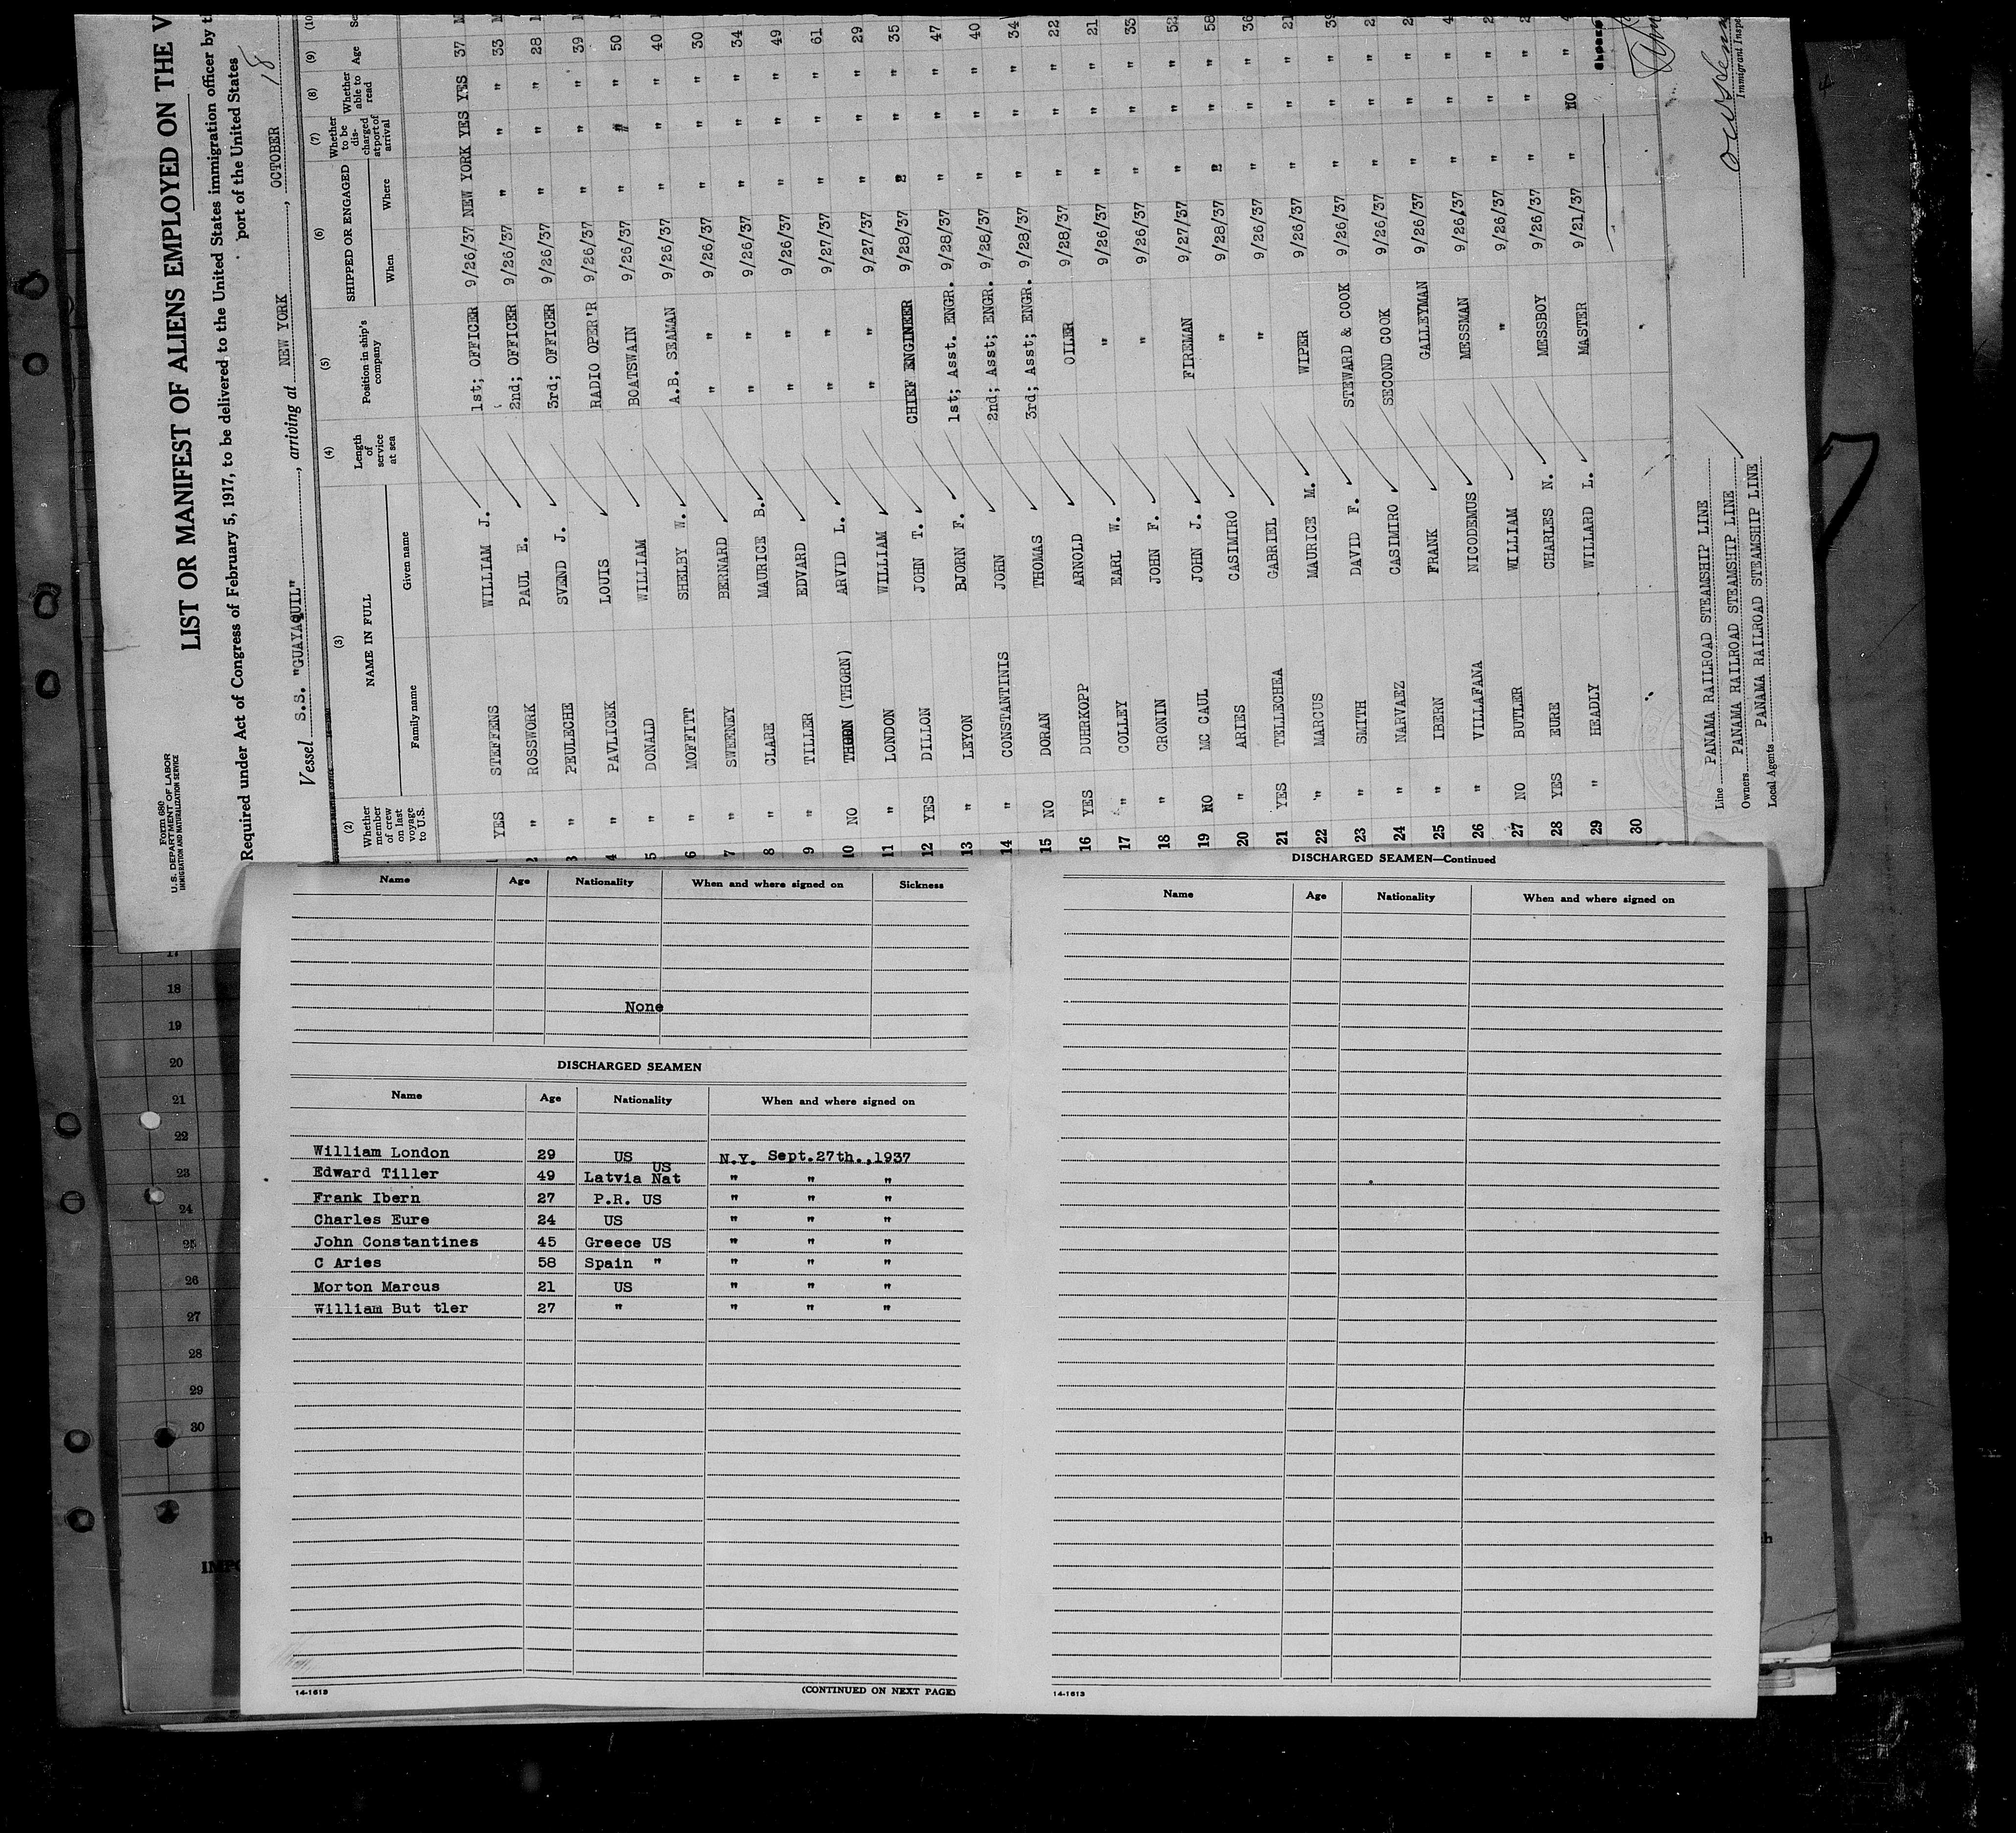 Form 680
U. S. DEPARTMENT OF LABOR
IMMIGRATION AND NATURALIZATION SERVICE
LIST OR MANIFEST OF ALIENS EMPLOYED ON THE V
Required under Act of Congress of February 5, 1917, to be delivered to the United States immigration officer by t
port of the United States
Vessel S.S. "GUAYAQUIL", arriving at NEW YORK, OCTOBER 18
(2) (3) (4) (5) (6) (7) (8) (9) (10
Whether member of crew on last voyage to U.S.
NAME IN FULL
Family name Given name
Length of service at sea
Position in ship's company
SHIPPED OR ENGAGED
When Where
Whether to be discharged at port of arrival
Whether able to read
Age
Se
1 YES STEFFENS WILLIAM J. 1st; OFFICER 9/26/37 NEW YORK YES YES 37 M
2 " ROSSWORK PAUL E. 2nd; OFFICER 9/26/37 " " " 33 M
3 " PEULECHE SVEND J. 3rd; OFFICER 9/26/37 " " " 28
4 " PAVLICEK LOUIS RADIO OPER'R 9/26/37 " " " 39
5 " DONALD WILLIAM BOATSWAIN 9/26/37 " " " 50
6 " MOFFITT SHELBY W. A.B. SEAMAN 9/26/37 " " " 40
7 " SWEENEY BERNARD " " 9/26/37 " " " 30
8 " CLARE MAURICE B. " " 9/26/37 " " " 34
9 " TILLER EDVARD " " 9/26/37 " " " 49
10 NO THORN (THORN) ARVID L. " " 9/27/37 " " " 61
11 " LONDON WILLIAM " " 9/27/37 " " " 29
12 YES DILLON JOHN T. CHIEF ENGINEER 9/28/37 " " " 35
13 " LEYON BJORN F. 1st; Asst. ENGR. 9/28/37 " " " 47
14 " CONSTANTINIS JOHN 2nd; Asst; ENGR. 9/28/37 " " " 40
15 NO DORAN THOMAS 3rd; Asst; ENGR. 9/28/37 " " " 34
16 YES DUHRKOPP ARNOLD OILER 9/28/37 " " " 22
17 " COLLEY EARL W. " 9/26/37 " " " 21
18 " CRONIN JOHN F. " 9/26/37 " " " 33
19 NO MC CAUL JOHN J. FIREMAN 9/27/37 " " " 52
20 " ARIES CASIMIRO " 9/28/37 " " " 58
21 YES TELLECHEA GABRIEL " 9/26/37 " " " 36
22 " MARCUS MAURICE M. WIPER 9/26/37 " " " 21
23 " SMITH DAVID F. STEWARD & COOK 9/26/37 " " " 39
24 " NARVAEZ CASIMIRO SECOND COOK 9/26/37 " " " 2
25 " IBERN FRANK GALLEYMAN 9/26/37 " " " 2
26 " VILLAFANA NICODEMUS MESSMAN 9/26/37 " " " 4
27 NO BUTLER WILLIAM " 9/26/37 " " " 2
28 YES EURE CHARLES N. MESSBOY 9/26/37 " " " 2
29 " HEADLY WILLARD L. MASTER 9/21/37 " NO " 4
30
Line PANAMA RAILROAD STEAMSHIP LINE
Owners PANAMA RAILROAD STEAMSHIP LINE
Local Agents PANAMA RAILROAD STEAMSHIP LINE
Immigrant Inspe
17
18
19
20
21
22
23
24
25
26
27
28
29
30
IMPO
Name Age Nationality When and where signed on Sickness
None
DISCHARGED SEAMEN
Name Age Nationality When and where signed on
William London 29 US N.Y. Sept.27th.,1937
US
Edward Tiller 49 Latvia Nat " " "
Frank Ibern 27 P.R. US " " "
Charles Eure 24 US " " "
John Constantines 45 Greece US " " "
C Aries 58 Spain " " " "
Morton Marcus 21 US " " "
William But tler 27 " " " "
14-1613
(CONTINUED ON NEXT PAGE)
DISCHARGED SEAMEN—Continued
Name Age Nationality When and where signed on
14-1613